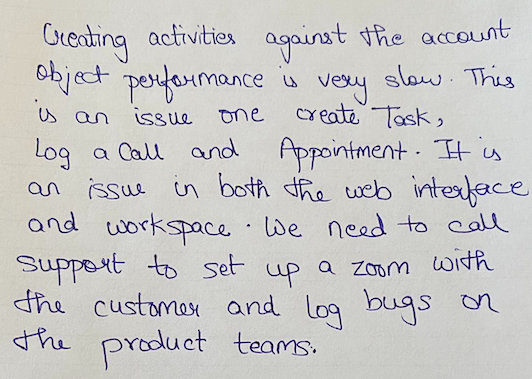 Creating activities against the account
object performance is very slow. This
is an issue one create Task,
Log a Call and Appointment. It is
an issue in both the web interface
and workspace. We need to call
support to set up a zoom with
the customer and log bugs on
the product teams.